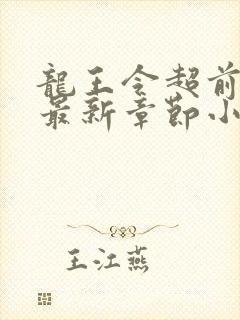 龍王令超前
最新章節小
王江燕